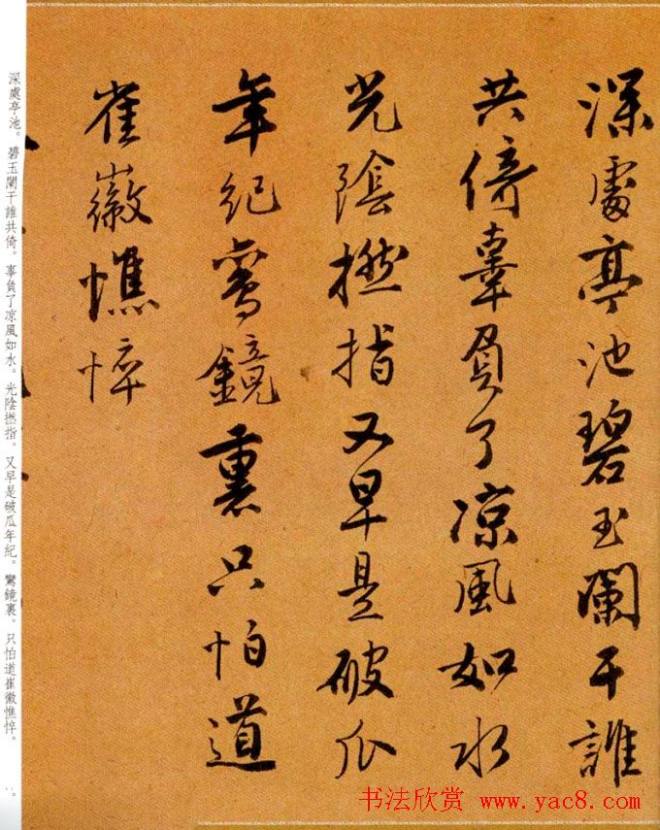 深處亭池碧玉闌干誰
共倚辜負了凉風如水
光陰撚指又早是破瓜
年紀鸞鏡裏只怕道
崔徽憔悴
深處亭池。碧玉闌干誰共倚。辜負了凉風如水。光陰撚指。又早是破瓜年紀。鸞鏡裏。只怕道崔徽憔悴。
书法欣赏 www.yac8.com